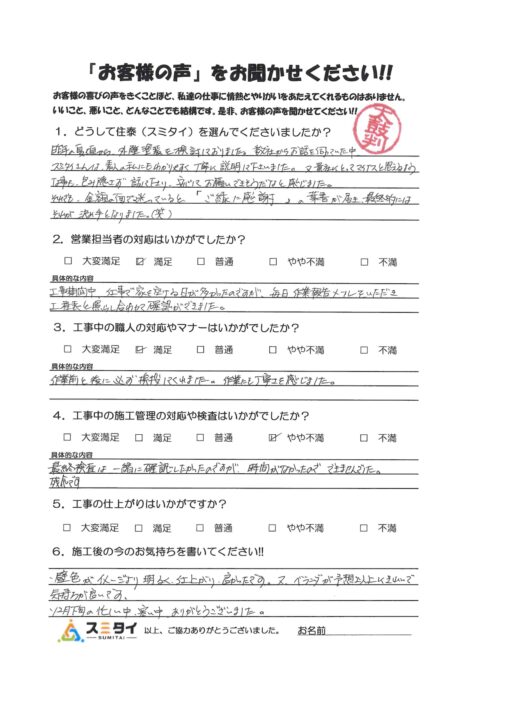 「お客様の声」をお聞かせください!!
お客様の喜びの声をきくことほど、私達の仕事に情熱とやりがいをあたえてくれるものはありません。
いいこと、悪いこと、どんなことでも結構です。是非、お客様の声を聞かせてください!!
太鼓判
1．どうして住泰（スミタイ）を選んでくださいましたか？
昨年の夏頃から、外壁塗装を検討しておりました。数社からお話を伺っていた中
スミタイさんは、素人の私にもわかりやすく丁寧に説明して下さいました。又業社にとってマイナスと思えるよう
な事も、包み隠さずお話して下さり、安心してお願いできそうだなと感じました。
それでも、金額の面で迷っていると、「ご縁に感謝」の葉書が届き、最終的には
それが決め手となりました。(笑)
2．営業担当者の対応はいかがでしたか？
□ 大変満足 ☑ 満足 □ 普通 □ やや不満 □ 不満
具体的な内容
工事期間中、仕事で家を空ける日が多かったのですが、毎日作業報告メールをいただき
工程表と照らし合わせて確認ができました。
3．工事中の職人の対応やマナーはいかがでしたか？
□ 大変満足 ☑ 満足 □ 普通 □ やや不満 □ 不満
具体的な内容
作業前と後に必ず挨拶してくれました。作業にも丁寧さを感じました。
4．工事中の施工管理の対応や検査はいかがでしたか？
□ 大変満足 □ 満足 □ 普通 ☑ やや不満 □ 不満
具体的な内容
最終検査は一緒に確認したかったのですが、時間がなかったのでできませんでした。
残念です
5．工事の仕上がりはいかがですか？
□ 大変満足 □ 満足 □ 普通 □ やや不満 □ 不満
6．施工後の今のお気持ちを書いてください!!
・壁色がイメージより明るく仕上がり、良かったです。又、ベランダが予想以上にきれいで
気持ちが良いです。
12月下旬の忙しい中、寒い中ありがとうございました。
スミタイ 以上、ご協力ありがとうございました。 お名前
SUMITAI